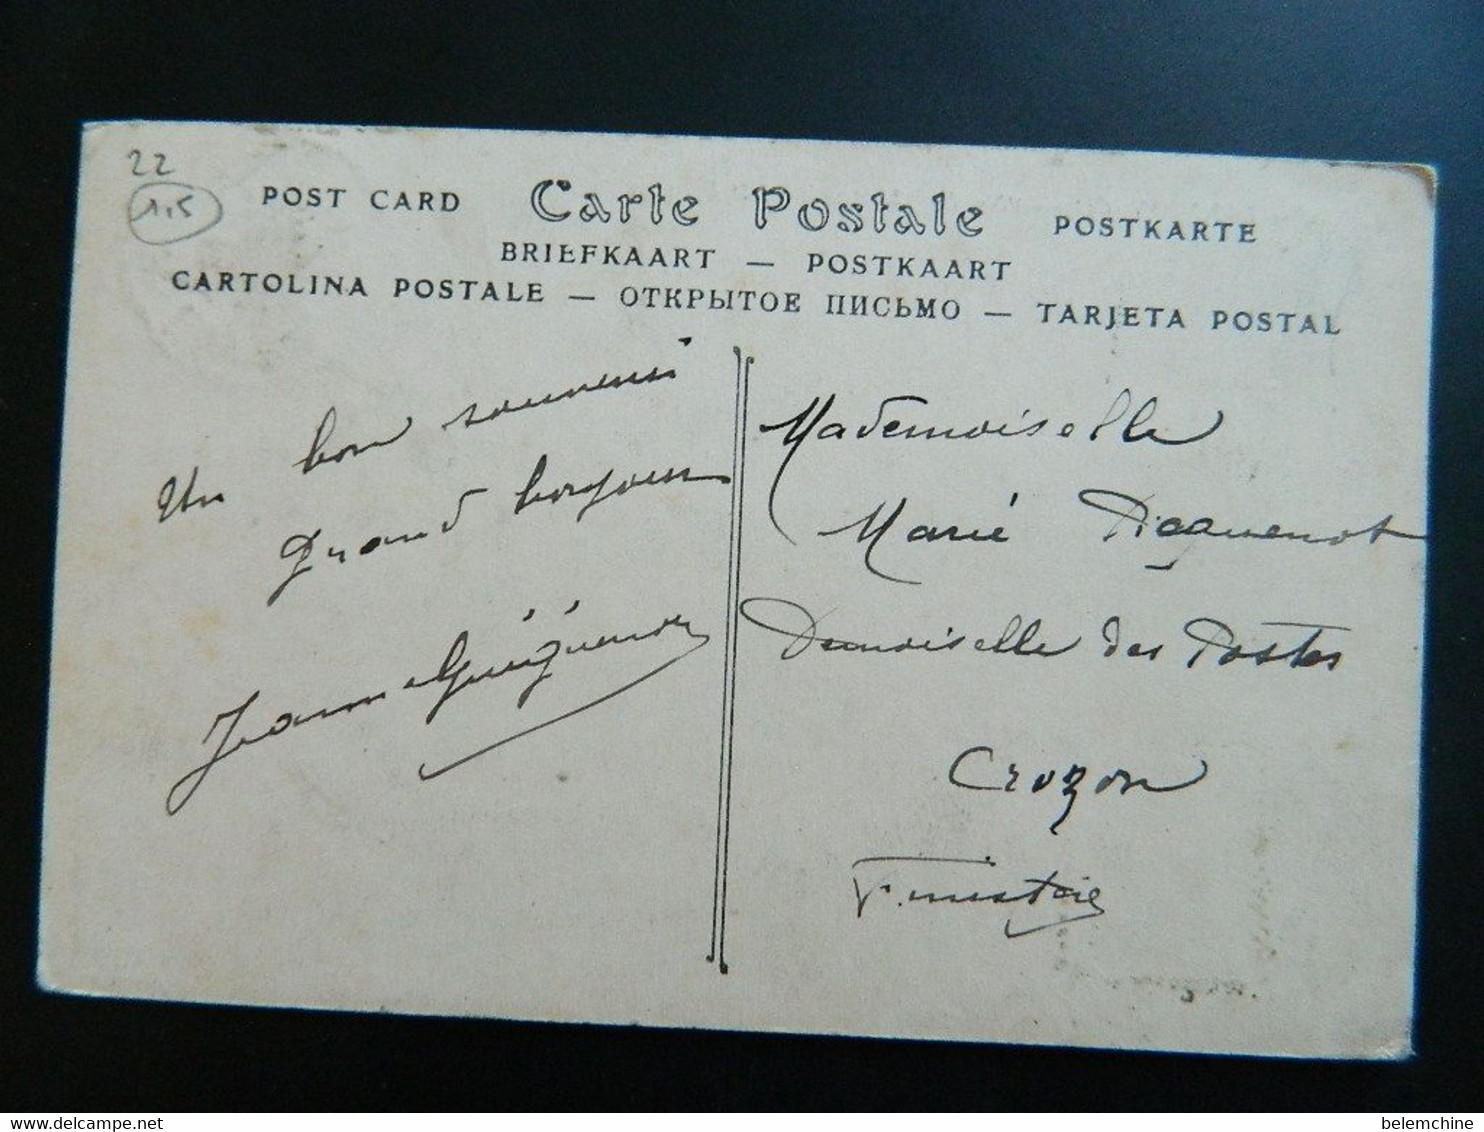 22
1,5
POST CARD Carte Postale POSTKARTE
BRIEFKAART — POSTKAART
CARTOLINA POSTALE — ОТКРЫТОЕ ПИСЬМО — TARJETA POSTAL
Un bon souvenir
Grand bonjour
Jeanne Guéguénou
Mademoiselle
Marie
Demoiselle des Postes
Crozon
Finistère
belemchine